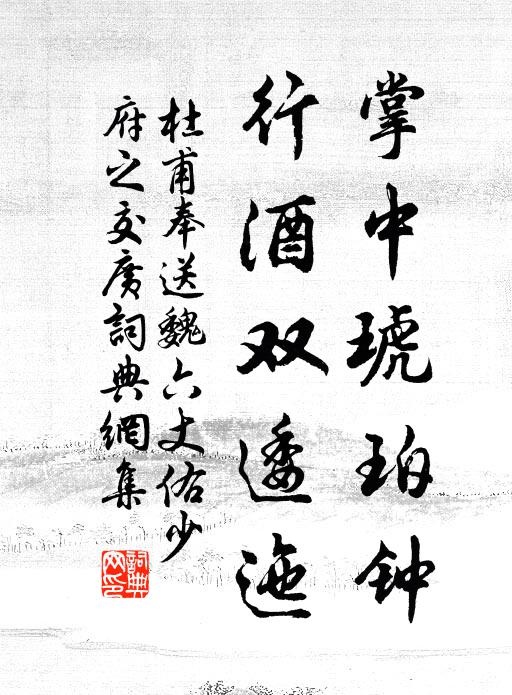 掌中琥珀钟
行酒双逶迤
杜甫奉送魏六丈佑少
府之交广词典網集
詞典
网印